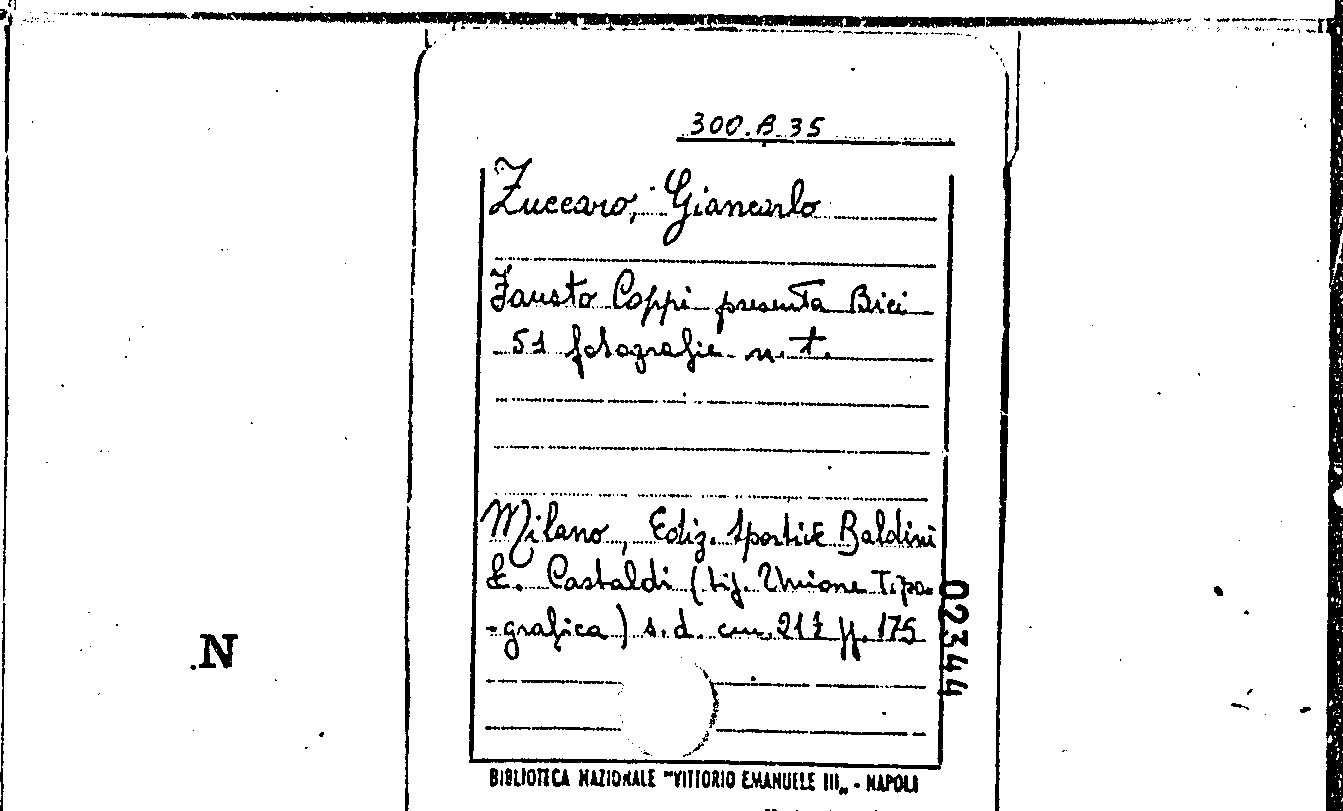 300.B.35
Zuccaro, Giancarlo
Fausto Coppi presenta Bici
51 fotografie n. t.
Milano, Ediz. Sportive Baldini
& Castaldi (tip. Unione Tipo-
-grafica) s.d. cm. 21½ pp. 175
02344
.N
BIBLIOTECA NAZIONALE "VITTORIO EMANUELE III„ - NAPOLI